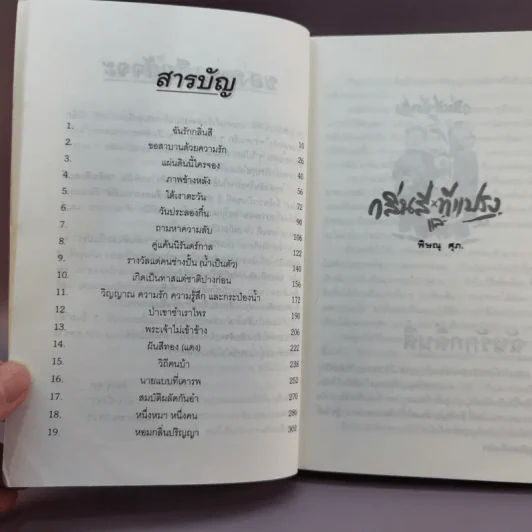 สารบัญ
1. ฉันรักกลิ่นสี 10
2. ขอสาบานด้วยความรัก 26
3. แผ่นดินนี้ใครจอง 40
4. ภาพข้างหลัง 56
5. ใต้เงาตะวัน 72
6. วันประลองกึ๋น 90
7. ถามหาความลับ 106
8. คู่แค้นนิรันดร์กาล 122
9. รางวัลแด่คนช่างปั้น (น้ำเป็นตัว) 140
10. เกิดเป็นทาสแต่ชาติปางก่อน 156
11. วิญญาณ ความรัก ความรู้สึก และกระป๋องน้ำ 172
12. ป่าเขาลำเนาไพร 190
13. พระเจ้าไม่เข้าข้าง 206
14. ผืนสีทอง (แดง) 222
15. วิถีคนบ้า 236
16. นายแบบที่เคารพ 252
17. สมบัติผลัดกันอำ 270
18. หนึ่งหมา หนึ่งคน 286
19. หอมกลิ่นปริญญา 302
กลิ่นสีและทีแปรง
พิษณุ ศุภ.